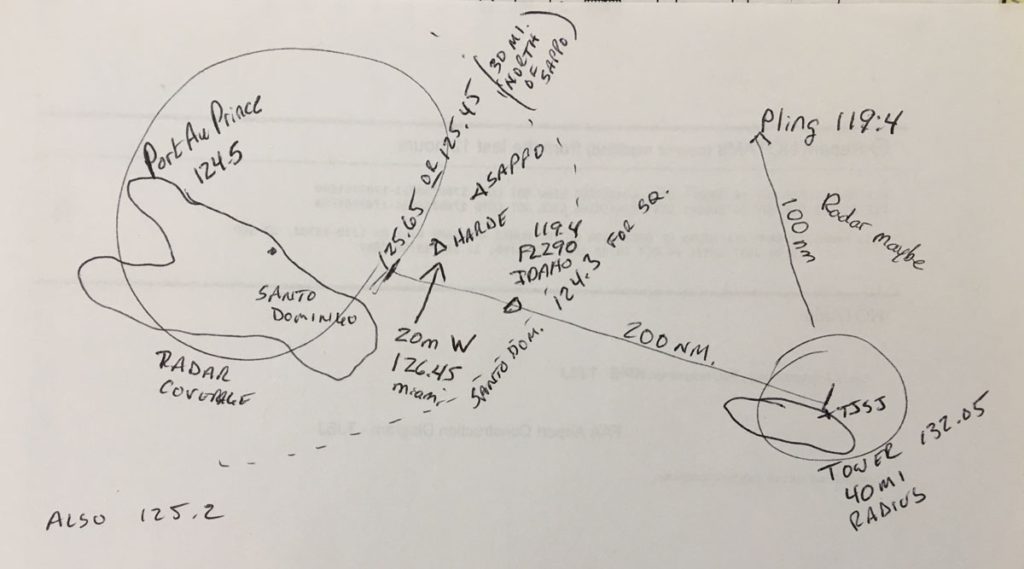 Port Au Prince
124.5
125.65 OR 125.45
(30 MI.
NORTH
OF
SAPPO)
SAPPO
HARDE
119.4
FL290
IDAHO
124.3 FOR SQ.
SANTO DOM.
SANTO
DOMINGO
20m W
126.45
miami
RADAR
COVERAGE
Pling 119.4
100nm
Radar maybe
200 NM.
TJSJ
TOWER 132.05
40MI
RADIUS
ALSO 125.2